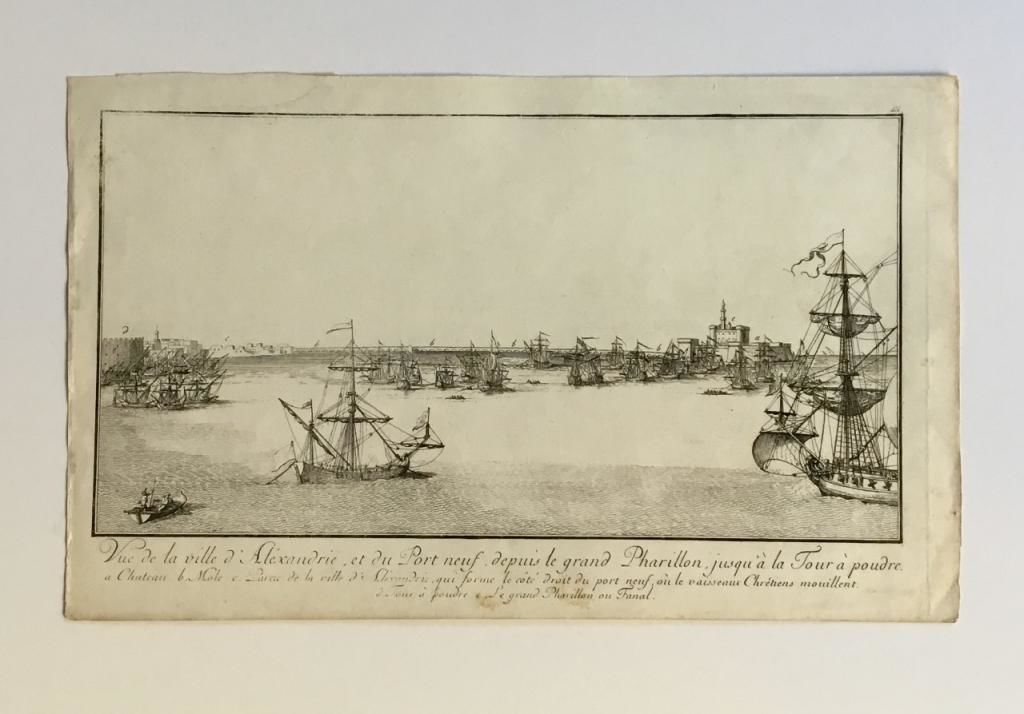 Vue de la ville d'Aléxandrie, et du Port neuf, depuis le grand Pharillon, jusqu'à la Tour à poudre.
a Chateau b. Mole c. Partie de la ville d'Aléxandrie, qui forme le côté droit du port neuf, où le vaisseaux Chrétiens mouillent.
d. Tour à poudre e Le grand Pharillon ou Fanal.